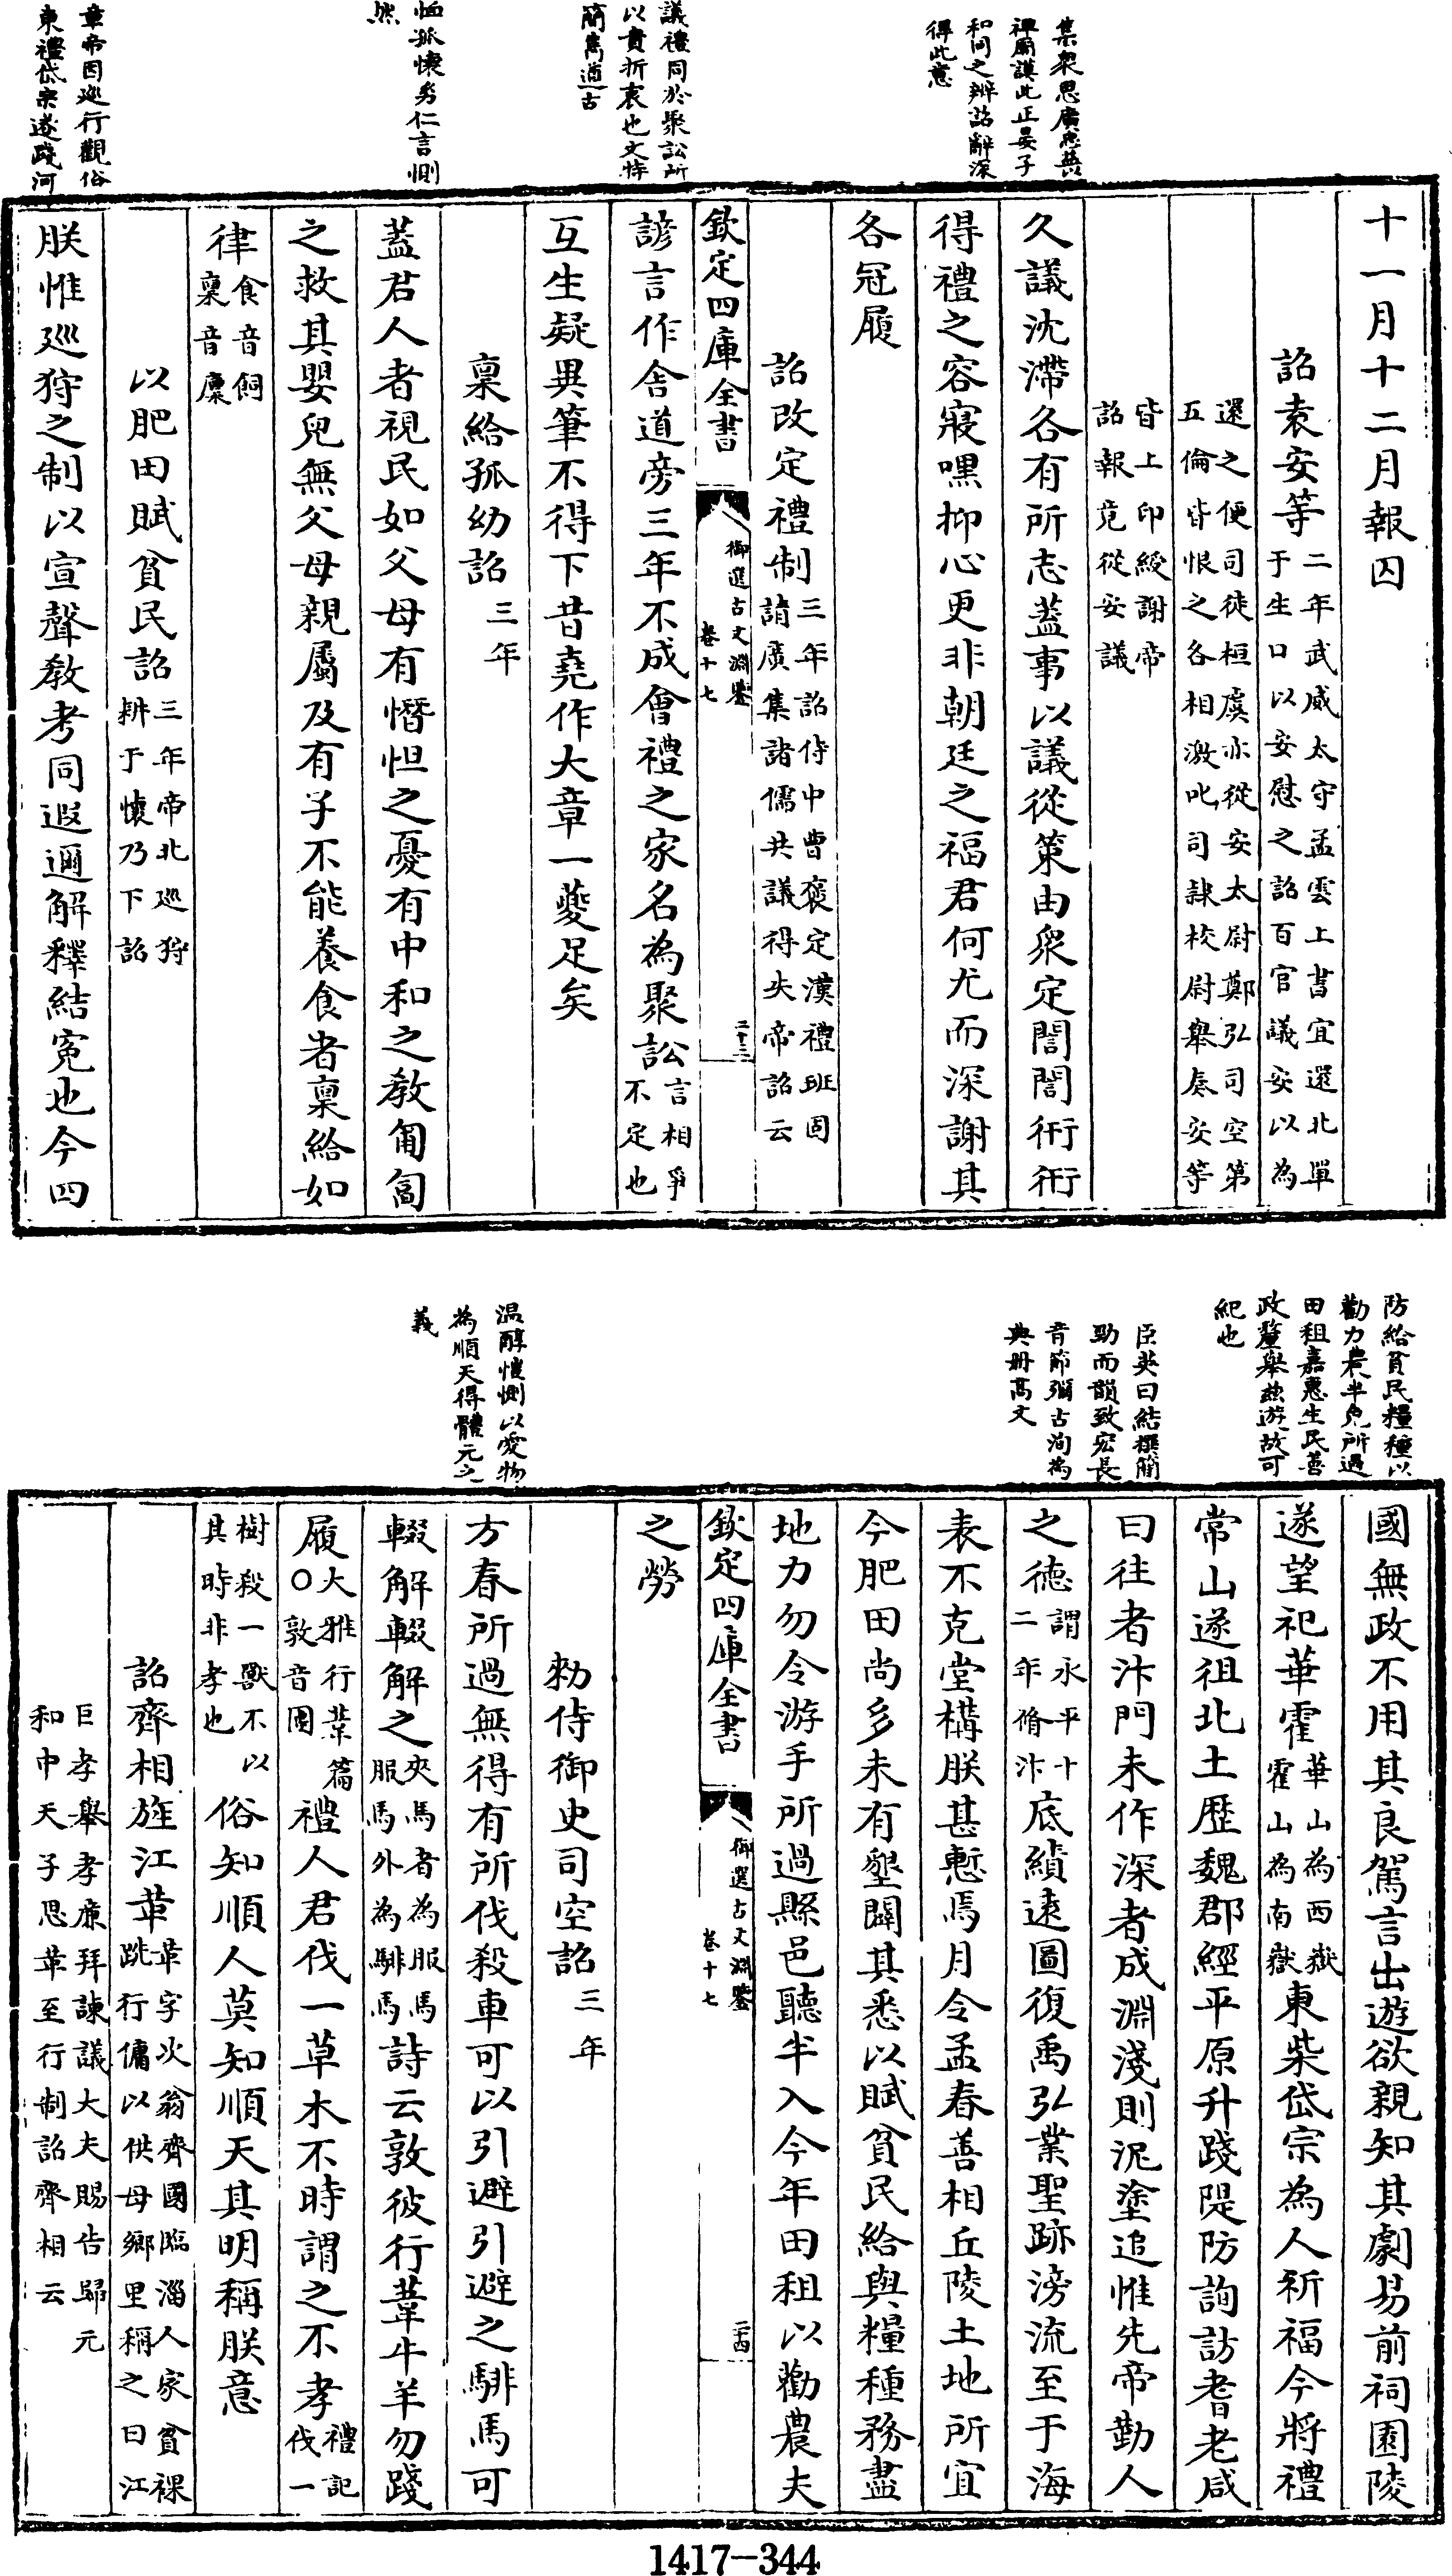 集衆思廣忠益
禆廟謨此正晏子
和同之辨詔辭深
得此意
議禮同於聚訟所
以貴折衷也文特
簡雋遒古
恤孤懷㓜仁言惻
然
章帝因巡行觀俗
東禮岱宗遂踐河
十一月十二月報囚
詔袁安等二年武威太守孟雲上書宜還北單于生口以安慰之詔百官議安以為
還之便司徒桓虞亦從安太尉鄭弘司空第五倫皆恨之各相激叱司隷校尉舉奏安等
皆上印綬謝帝詔報竟從安議
久議沈滯各有所志蓋事以議從策由衆定誾誾衎衎
得禮之容寢嘿抑心更非朝廷之福君何尤而深謝其
各冠履
詔改定禮制三年詔侍中曹褒定漢禮班固請廣集諸儒共議得失帝詔云
欽定四庫全書 御選古文淵鑒 卷十七 二十三
諺言作舍道旁三年不成會禮之家名為聚訟言相爭不定也
互生疑異筆不得下昔堯作大章一夔足矣
稟給孤幼詔三年
蓋君人者視民如父母有憯怛之憂有中和之教匍匐
之救其嬰兒無父母親屬及有子不能養食者稟給如
律食音飼稟音廩
以肥田賦貧民詔三年帝北巡狩耕于懷乃下詔
朕惟巡狩之制以宣聲教考同遐邇解釋結寃也今四
防給貧民糧種以
勸力農半免所過
田租嘉惠生民善
政釐舉兹遊故可
紀也
臣英曰結撰簡
勁而韻致宏長
音節彌古洵為
典册髙文
温醇愷惻以愛物
為順天得體元之
義
國無政不用其良駕言出遊欲親知其劇易前祠園陵
遂望祀華霍華山為西嶽霍山為南嶽東柴岱宗為人祈福今將禮
常山遂徂北土歴魏郡經平原升踐隄防詢訪耆老咸
曰往者汴門未作深者成淵淺則泥塗追惟先帝勤人
之徳謂永平十二年脩汴底績逺圖復禹弘業聖跡滂流至于海
表不克堂構朕甚慙焉月令孟春善相丘陵土地所宜
今肥田尚多未有墾闢其悉以賦貧民給與糧種務盡
地力勿令游手所過縣邑聽半入今年田租以勸農夫
欽定四庫全書 御選古文淵鑒 卷十七 二十四
之勞
勑侍御史司空詔三年
方春所過無得有所伐殺車可以引避引避之騑馬可
輟解輟解之夾馬者為服馬服馬外為騑馬詩云敦彼行葦牛羊勿踐
履大雅行葦篇○敦音團禮人君伐一草木不時謂之不孝禮記伐一
樹殺一獸不以其時非孝也俗知順人莫知順天其明稱朕意
詔齊相旌江革革字次翁齊國臨淄人家貧裸跣行傭以供母鄉里稱之曰江
巨孝舉孝廉拜諫議大夫賜告歸元和中天子思革至行制詔齊相云
1417-344